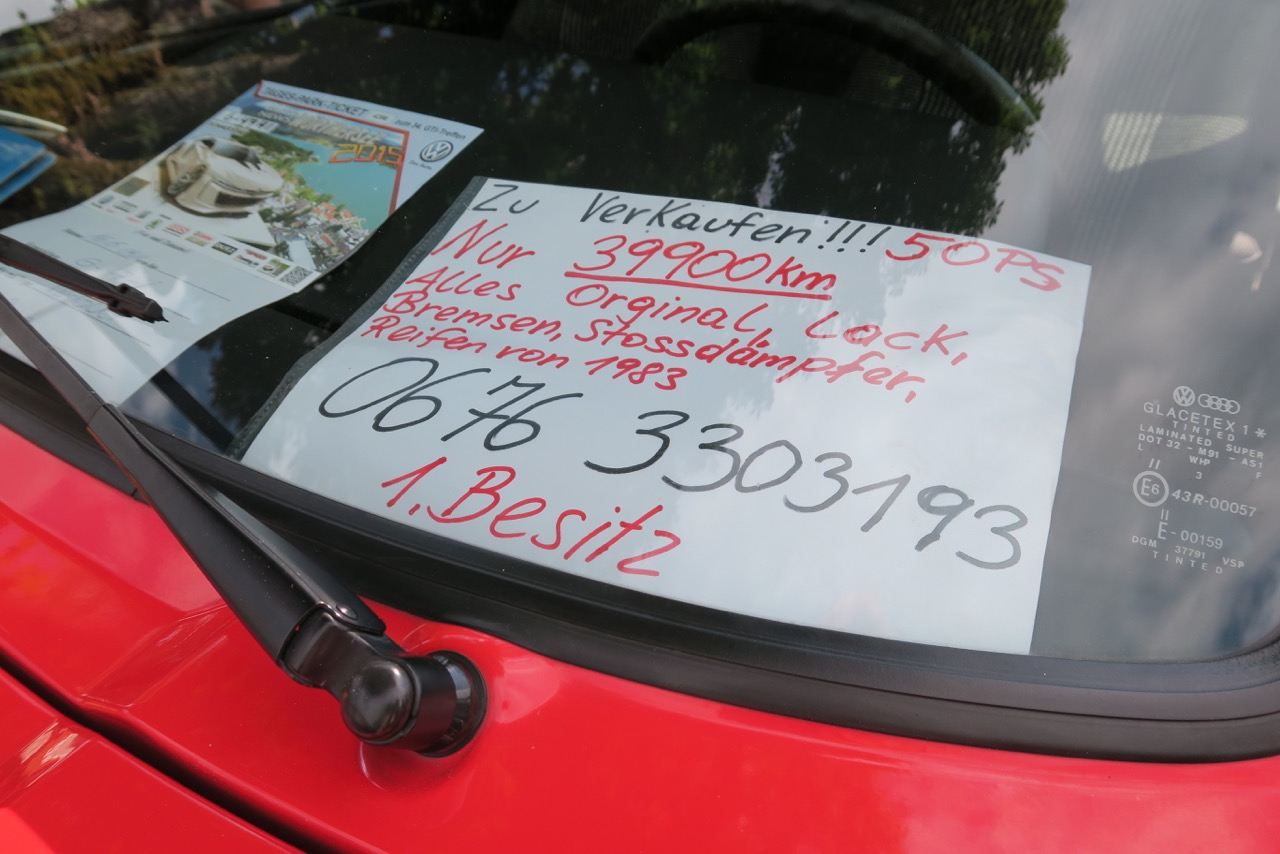 TAGES-PARK-TICKET
zum 34. GTI-Treffen
2015
Das Auto.
Zu Verkaufen!!! 50PS
Nur 39900km
Alles Orginal, Lack,
Bremsen, Stossdämpfer,
Reifen von 1983
0676 3303193
1. Besitz
GLACETEX 1*
TINTED
LAMINATED SUPER
DOT 32 - M91 - AS1
L WHP F
3
II
E6 43R-00057
II
E-00159
DGM 37791 VSP
TINTED